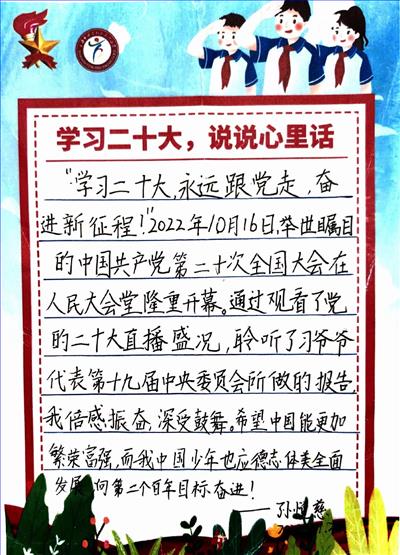 学习二十大，说说心里话
“学习二十大，永远跟党走，奋
进新征程！”2022年10月16日，举世瞩目
的中国共产党第二十次全国大会在
人民大会堂隆重开幕。通过观看了党
的二十大直播盛况，聆听了习爷爷
代表第十九届中央委员会所做的报告，
我倍感振奋，深受鼓舞。希望中国能更加
繁荣富强，而我中国少年也应德志体美全面
发展，向第二个百年目标奋进！